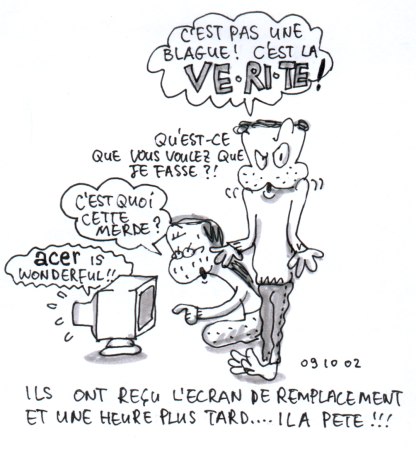 C'EST PAS UNE
BLAGUE! C'EST LA
VE•RI•TE!
QU'EST-CE
QUE VOUS VOULEZ QUE
JE FASSE?!
C'EST QUOI
CETTE
MERDE?
acer IS
WONDERFUL!!
09 10 02
ILS ONT REÇU L'ECRAN DE REMPLACEMENT
ET UNE HEURE PLUS TARD.... IL A PETE!!!